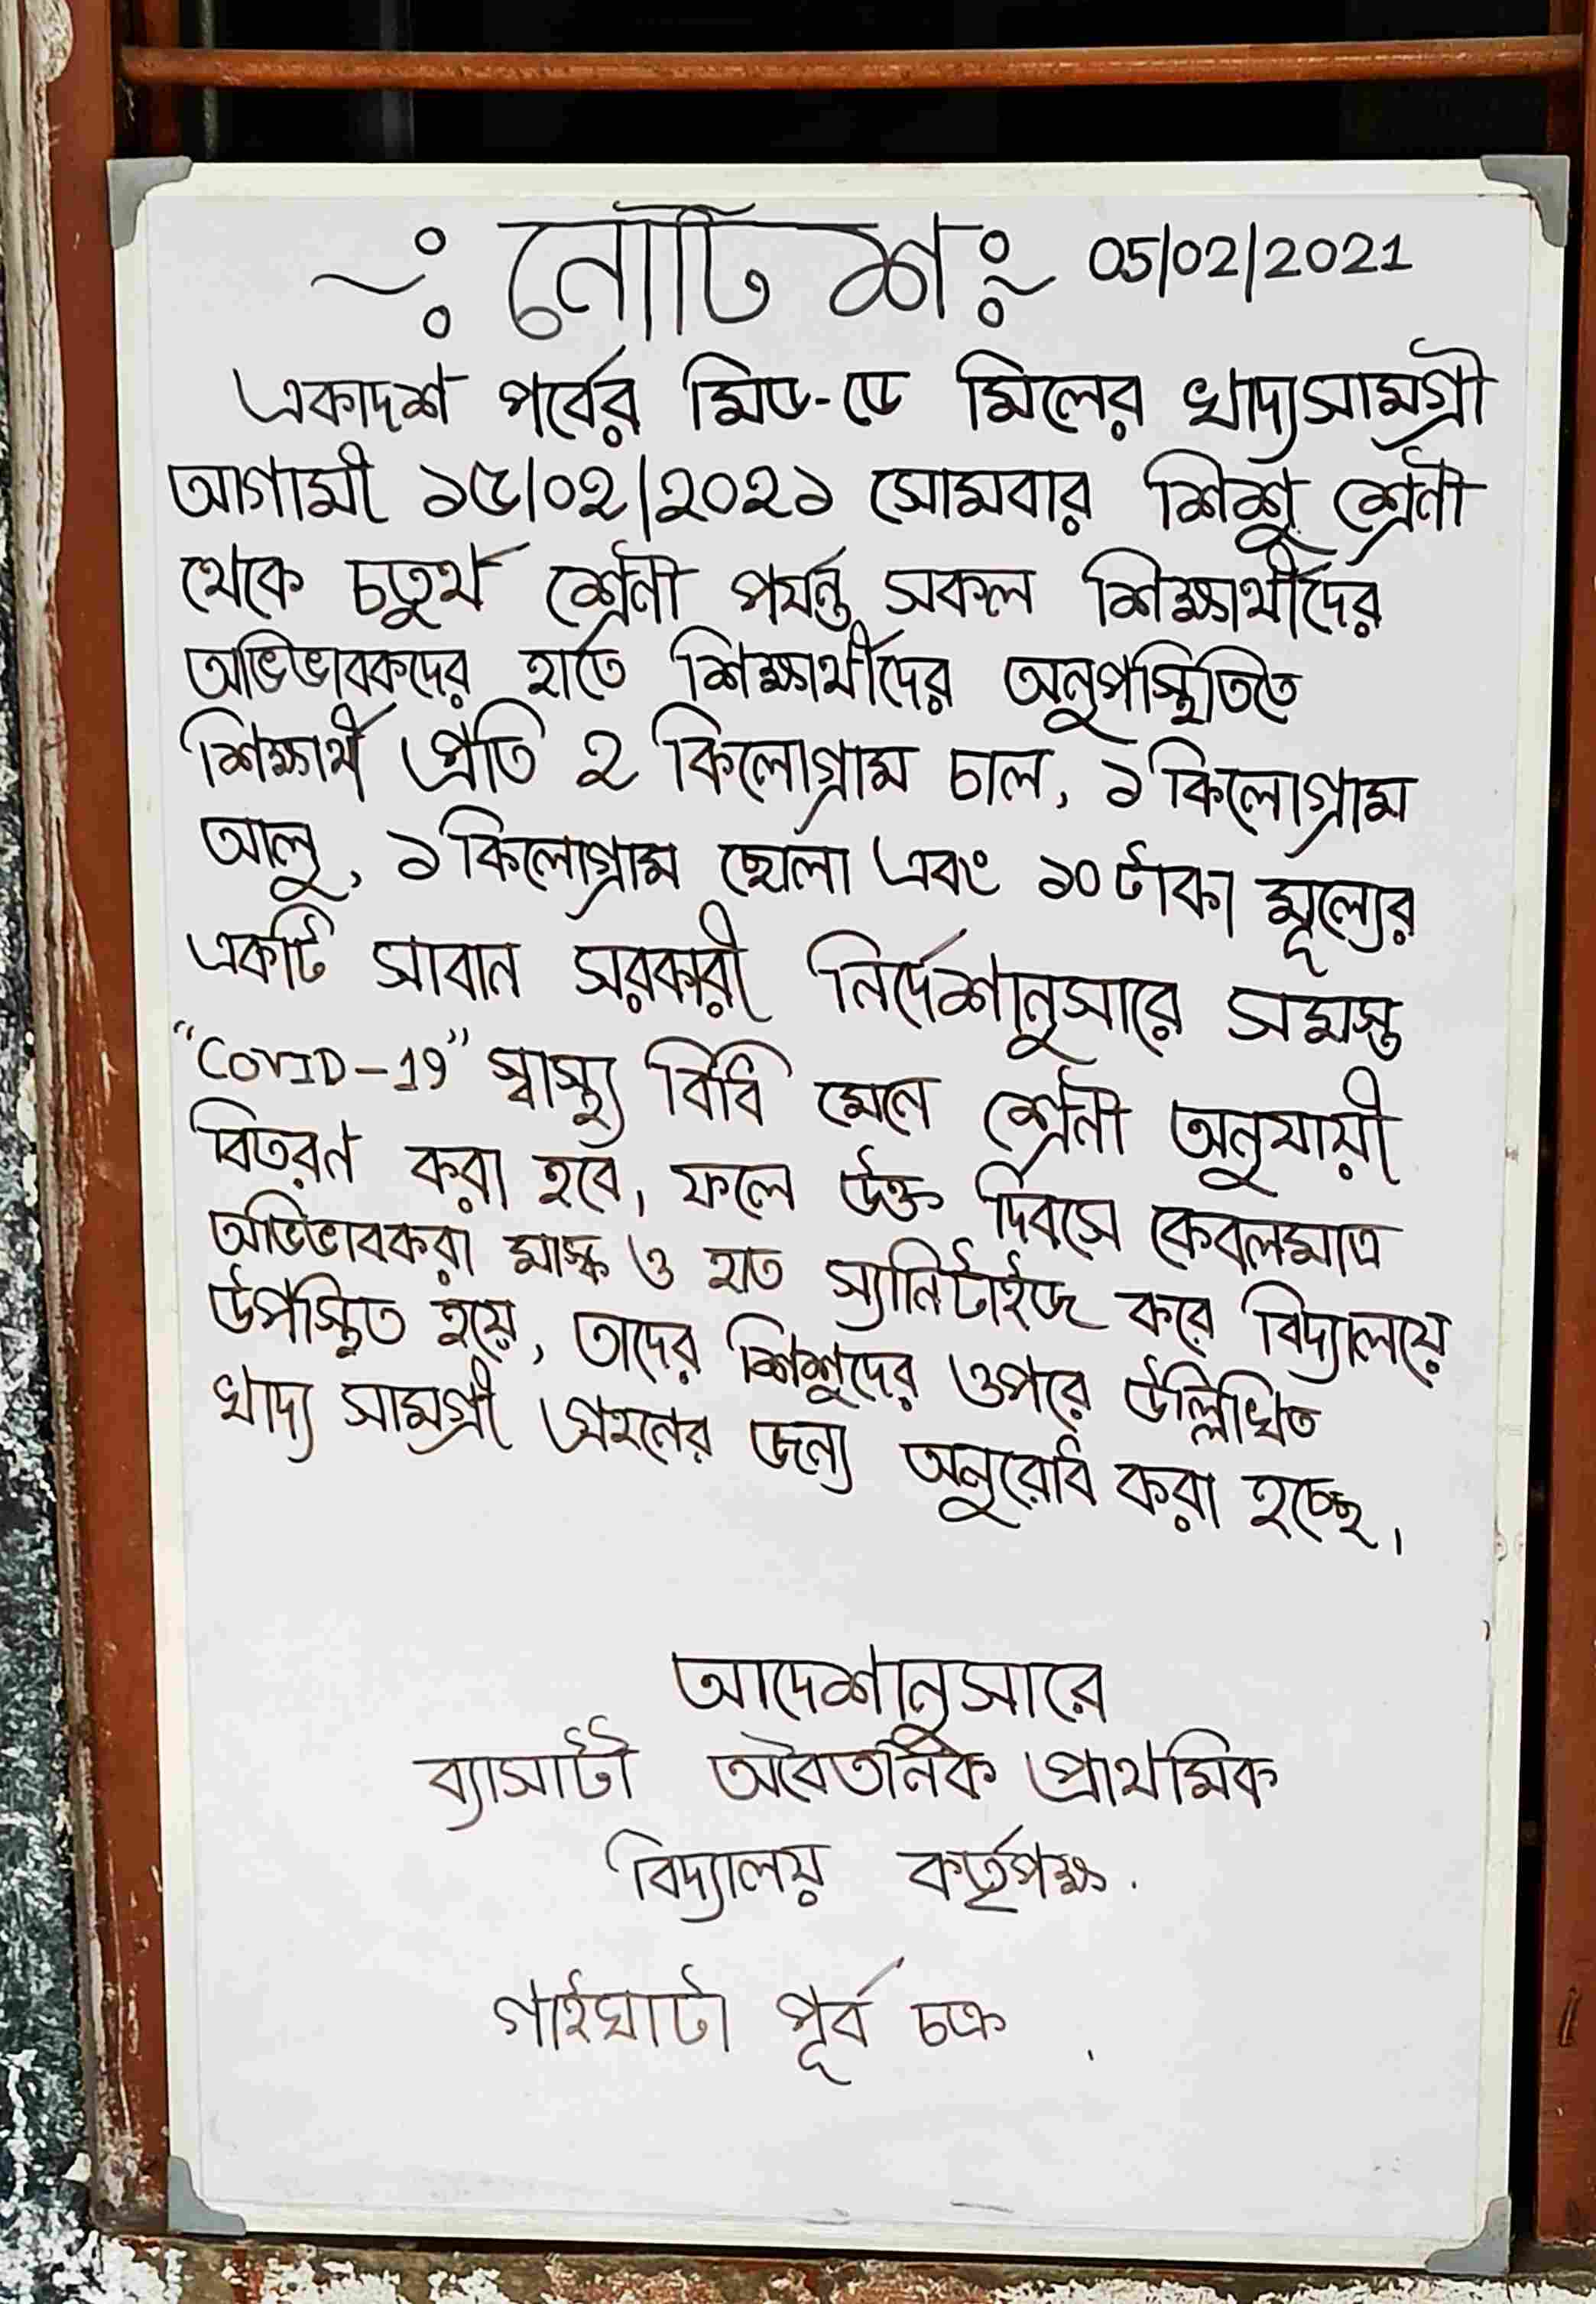 ~ঃ নোটিশ ঃ~ 05/02/2021
একাদশ পর্বের মিড-ডে মিলের খাদ্যসামগ্রী
আগামী ১৫/০২/২০২১ সোমবার শিশু শ্রেণী
থেকে চতুর্থ শ্রেণী পর্যন্ত সকল শিক্ষার্থীদের
অভিভাবকদের হাতে শিক্ষার্থীদের অনুপস্থিতিতে
শিক্ষার্থী প্রতি ২ কিলোগ্রাম চাল, ১ কিলোগ্রাম
আলু, ১ কিলোগ্রাম ছোলা এবং ১০ টাকা মূল্যের
একটি সাবান সরকারী নির্দেশানুসারে সমস্ত
"COVID-19" স্বাস্থ্য বিধি মেনে শ্রেণী অনুযায়ী
বিতরণ করা হবে। ফলে উক্ত দিবসে কেবলমাত্র
অভিভাবকরা মাস্ক ও হাত স্যানিটাইজ করে বিদ্যালয়ে
উপস্থিত হয়ে, তাদের শিশুদের ওপরে উল্লিখিত
খাদ্য সামগ্রী গ্রহনের জন্য অনুরোধ করা হচ্ছে।
আদেশানুসারে
ব্যাসাটী অবৈতনিক প্রাথমিক
বিদ্যালয় কর্তৃপক্ষ.
গাইঘাটা পূর্ব চক্র .